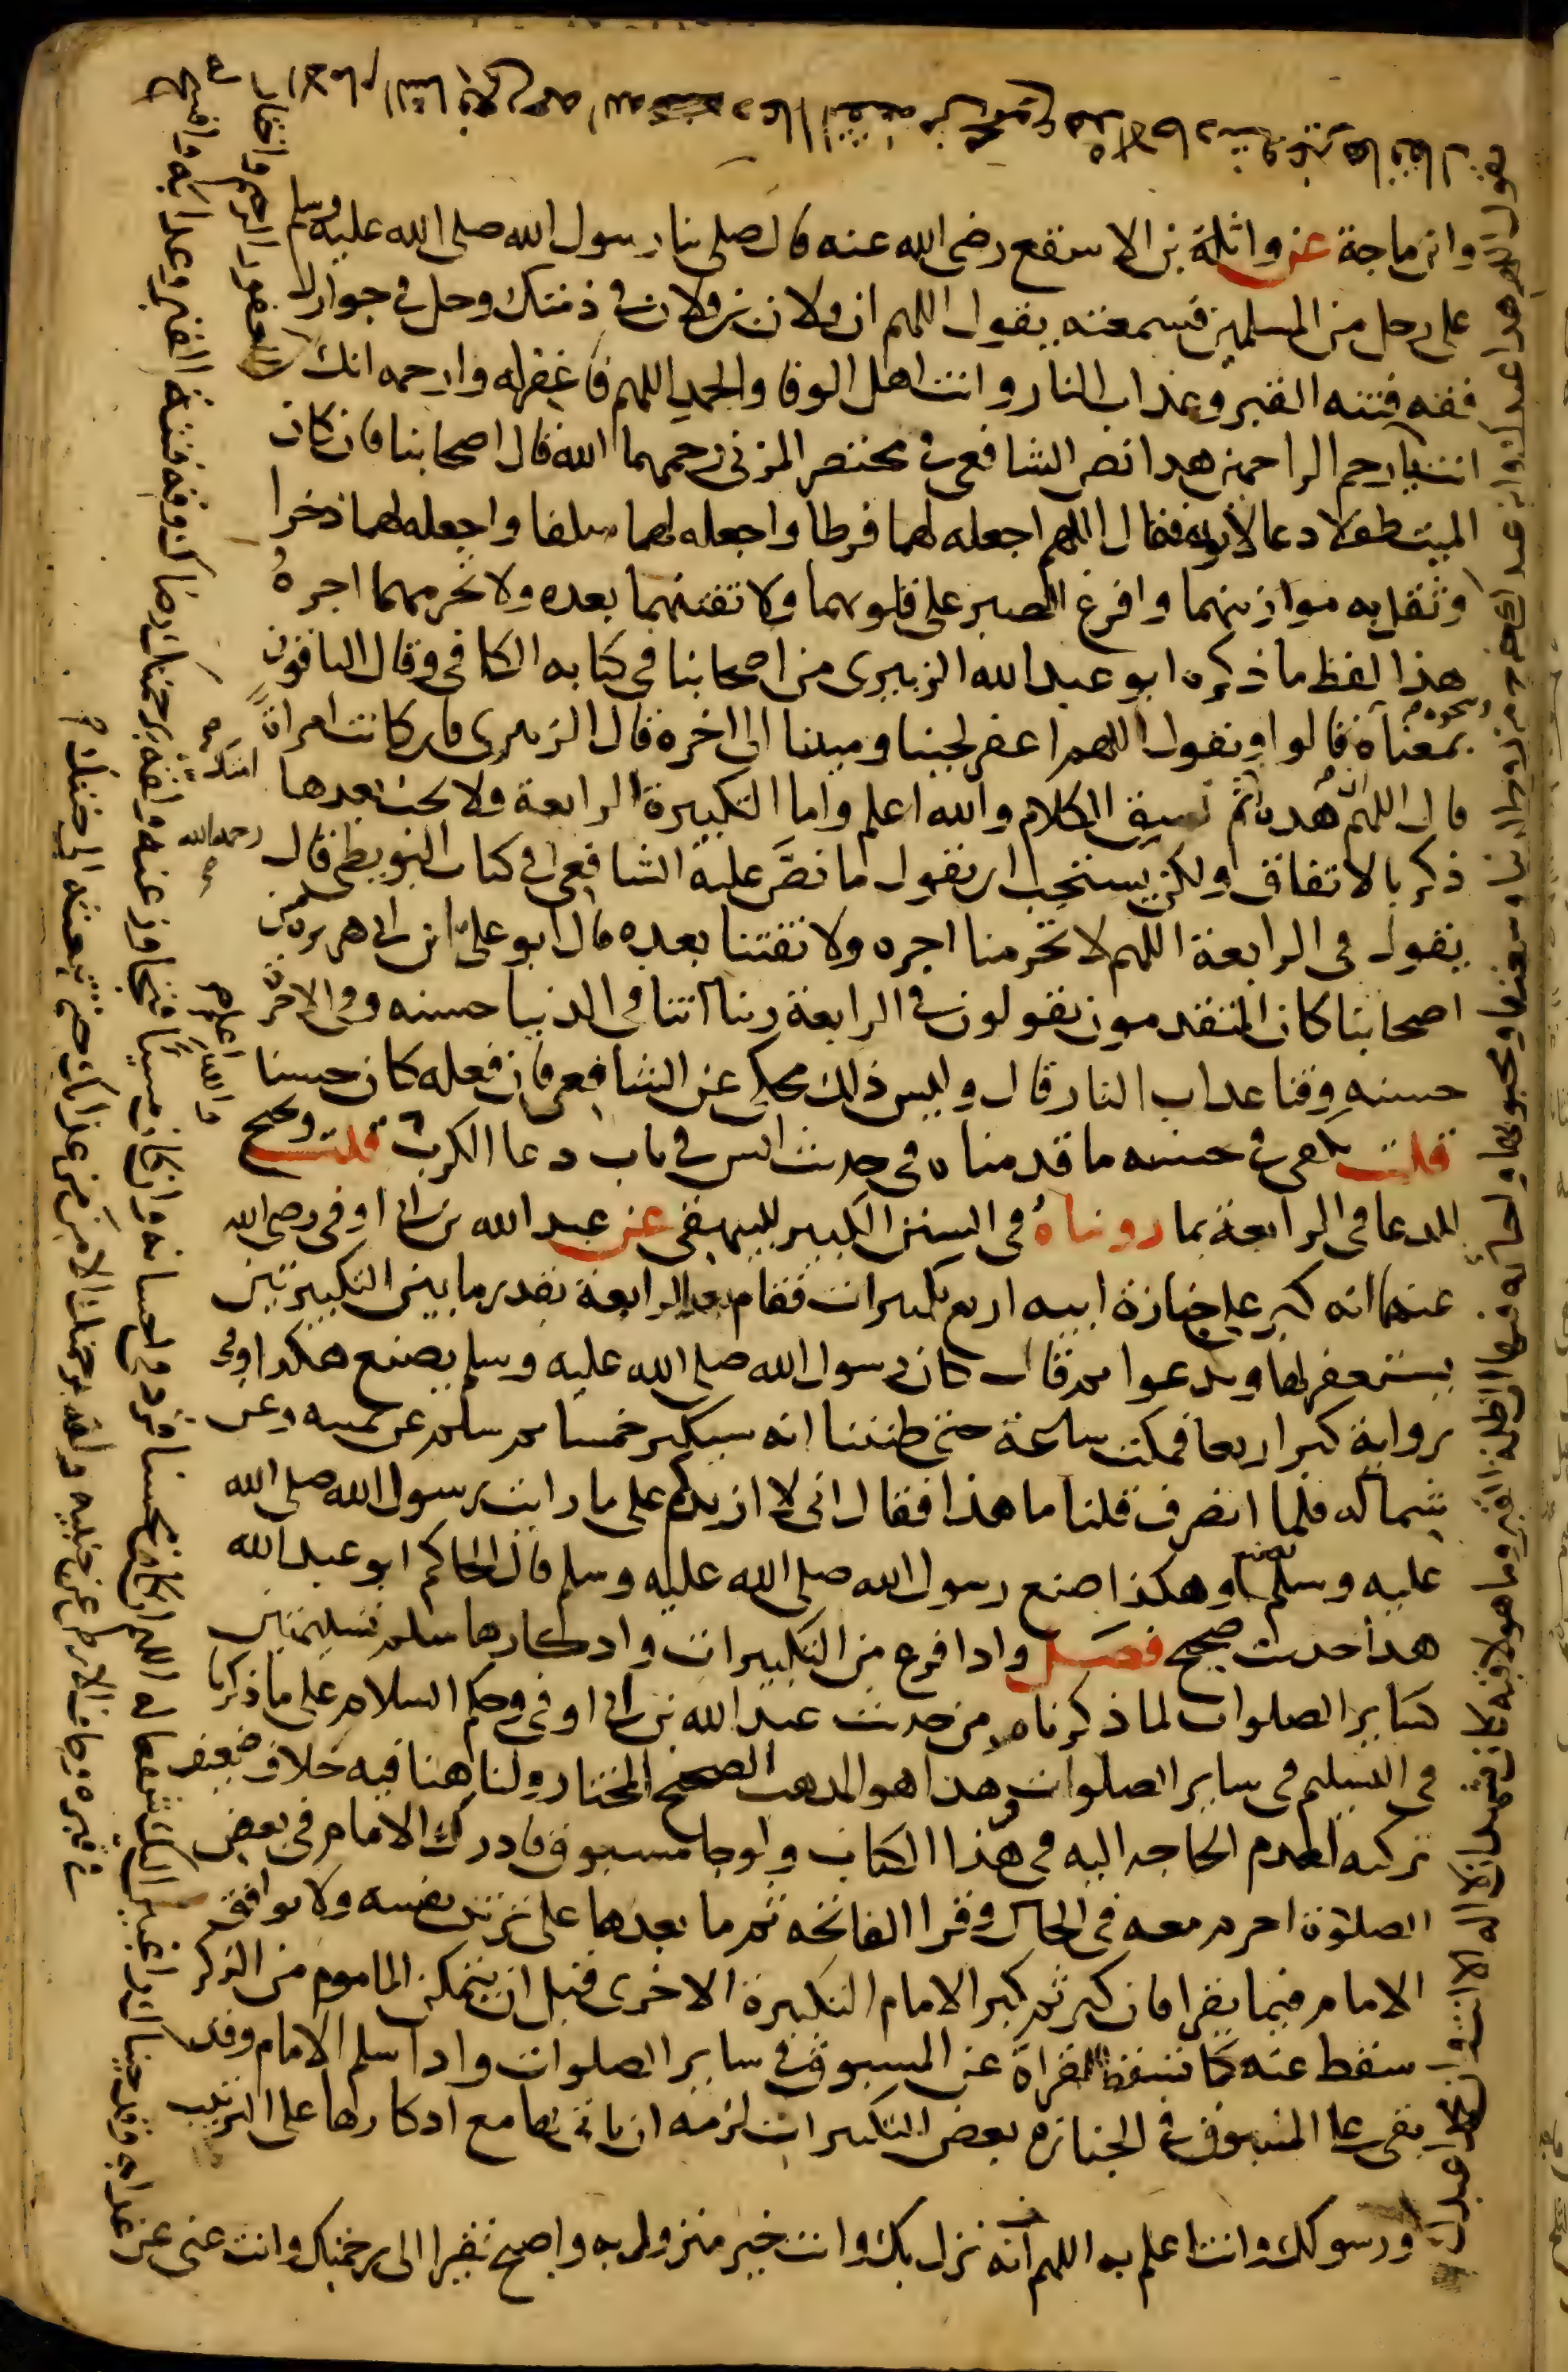 وابن ماجة عن واثلة بن الاسقع رضى الله عنه قال صلى بنا رسول الله صلى الله عليه وسلم
على رجل من المسلمين فسمعته يقول اللهم ان فلان بن فلان فى ذمتك وحل فى جوارك
فقه فتنة القبر وعذاب النار وانت اهل الوفا والحمد اللهم فاغفر له وارحمه انك
انت يا ارحم الراحمين هذا نص الشافعى فى مختصر المزنى رحمهما الله قال اصحابنا فان كان
الميت طفلا دعا لابويه فقال اللهم اجعله لهما فرطا واجعله لهما سلفا واجعله لهما ذخرا
وثقل به موازينهما وافرغ الصبر على قلوبهما ولا تفتنهما بعده ولا تحرمهما اجره
هذا لفظ ما ذكره ابو عبد الله الزبيرى من اصحابنا فى كتابه الكافى وقال الباقون
بمعناه ونحوه قالوا ويقول اللهم اغفر لحينا وميتنا الى اخره قال الزبيرى فان كانت امراة
قال اللهم هذه امتك ثم نسق الكلام والله اعلم واما التكبيرة الرابعة فلا يجب بعدها
ذكر بالاتفاق ولكن يستحب ان يقول ما نص عليه الشافعى رحمه الله فى كتاب البويطى قال
يقول فى الرابعة اللهم لا تحرمنا اجره ولا تفتنا بعده قال ابو على ابن ابى هريرة من
اصحابنا كان المتقدمون يقولون فى الرابعة ربنا اتنا فى الدنيا حسنه وفى الاخرة
حسنه وقنا عذاب النار قال وليس ذلك بمحكى عن الشافعى فان فعله كان حسنا والله اعلم
قلت يكفى فى حسنه ما قدمناه فى حديث انس فى باب دعا الكرب قلت ويحتج
للدعا فى الرابعة بما روناه فى السنن الكبير للبيهقى عن عبد الله بن ابى اوفى رضى الله
عنهما انه كبر على جنازة ابنه اربع تكبيرات فقام بعد الرابعة بقدر ما بين التكبيرتين
يستغفر لها ويدعوا ثم قال كان رسول الله صلى الله عليه وسلم يصنع هكذا وفى
رواية كبر اربعا فمكث ساعة حتى ظننا انه سيكبر خمسا ثم سلم عن يمينه وعن
شماله فلما انصرف قلنا ما هذا فقال انى لا ازيدكم على ما رايت رسول الله صلى الله
عليه وسلم يصنع او هكذا صنع رسول الله صلى الله عليه وسلم قال الحاكم ابو عبد الله
هذا حديث صحيح فصل واذا فرغ من التكبيرات واذكارها سلم تسليمتين
كساير الصلوات لما ذكرناه من حديث عبد الله بن ابى اوفى وحكم السلام على ما ذكرنا
فى التسليم فى ساير الصلوات هذا هو المذهب الصحيح المختار ولنا هنا فيه خلاف ضعيف
تركته لعدم الحاجه اليه فى هذا الكتاب ولو جا مسبوق فادرك الامام فى بعض
الصلوة احرم معه فى الحال وقرا الفاتحه ثم ما بعدها على ترتيب نفسه ولا يوافق
الامام فيما يقرا فان كبر ثم كبر الامام التكبيرة الاخرى قبل ان يتمكن الماموم من الذكر
سقط عنه كما تسقط القراة عن المسبوق فى ساير الصلوات واذا سلم الامام وقد
بقى على المسبوق فى الجنازه بعض التكبيرات لزمه ان ياتى بها مع اذكارها على الترتيب
يقول اللهم هذا عبدك وابن عبدك خرج من روح الدنيا وسعتها ومحبوبها واحباؤه فيها الى ظلمة القبر وما هو لاقيه كان يشهد ان لا اله الا انت وان محمدا عبدك
ورسولك وانت اعلم به اللهم انه نزل بك وانت خير منزول به واصبح فقيرا الى رحمتك وانت غنى عن
عذابه وقد جيناك راغبين اليك شفعا له اللهم ان كان محسنا فزد فى احسانه وان كان مسيا فتجاوز عنه ولقه برحمتك رضاك وقه فتنة القبر وعذابه وافسح
له فى قبره وجاف الارض عن جنبيه ولقه برحمتك الامن من عذابك حتى تبعثه الى جنتك
الغفور الرحيم واختار